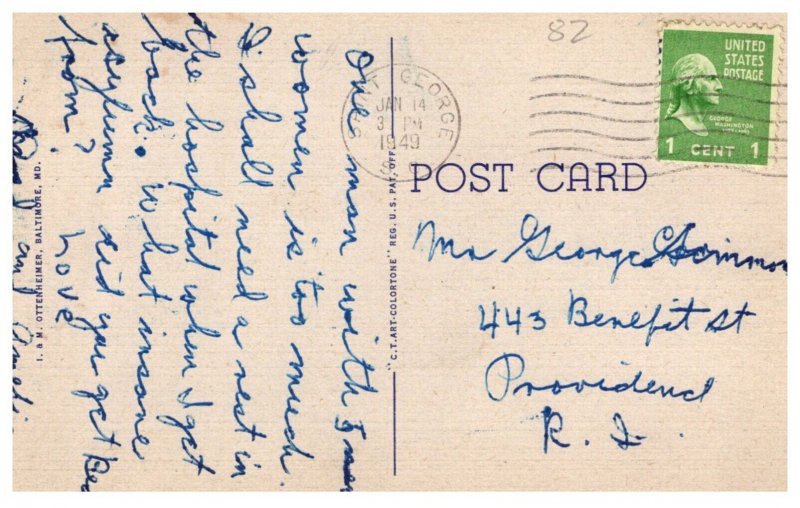 One man with 5
women is too much.
I shall need a rest in
the hospital when I get
back. What insane
asylum did you get
from?
Love
and
82
ST. GEORGE
JAN 14
3 PM
1949
UNITED
STATES
POSTAGE
GEORGE
WASHINGTON
1 CENT 1
POST CARD
"C.T. ART-COLORTONE" REG. U.S. PAT. OFF.
I. & M. OTTENHEIMER, BALTIMORE, MD.
Mr George
443 Benefit St
Providence
R. I.